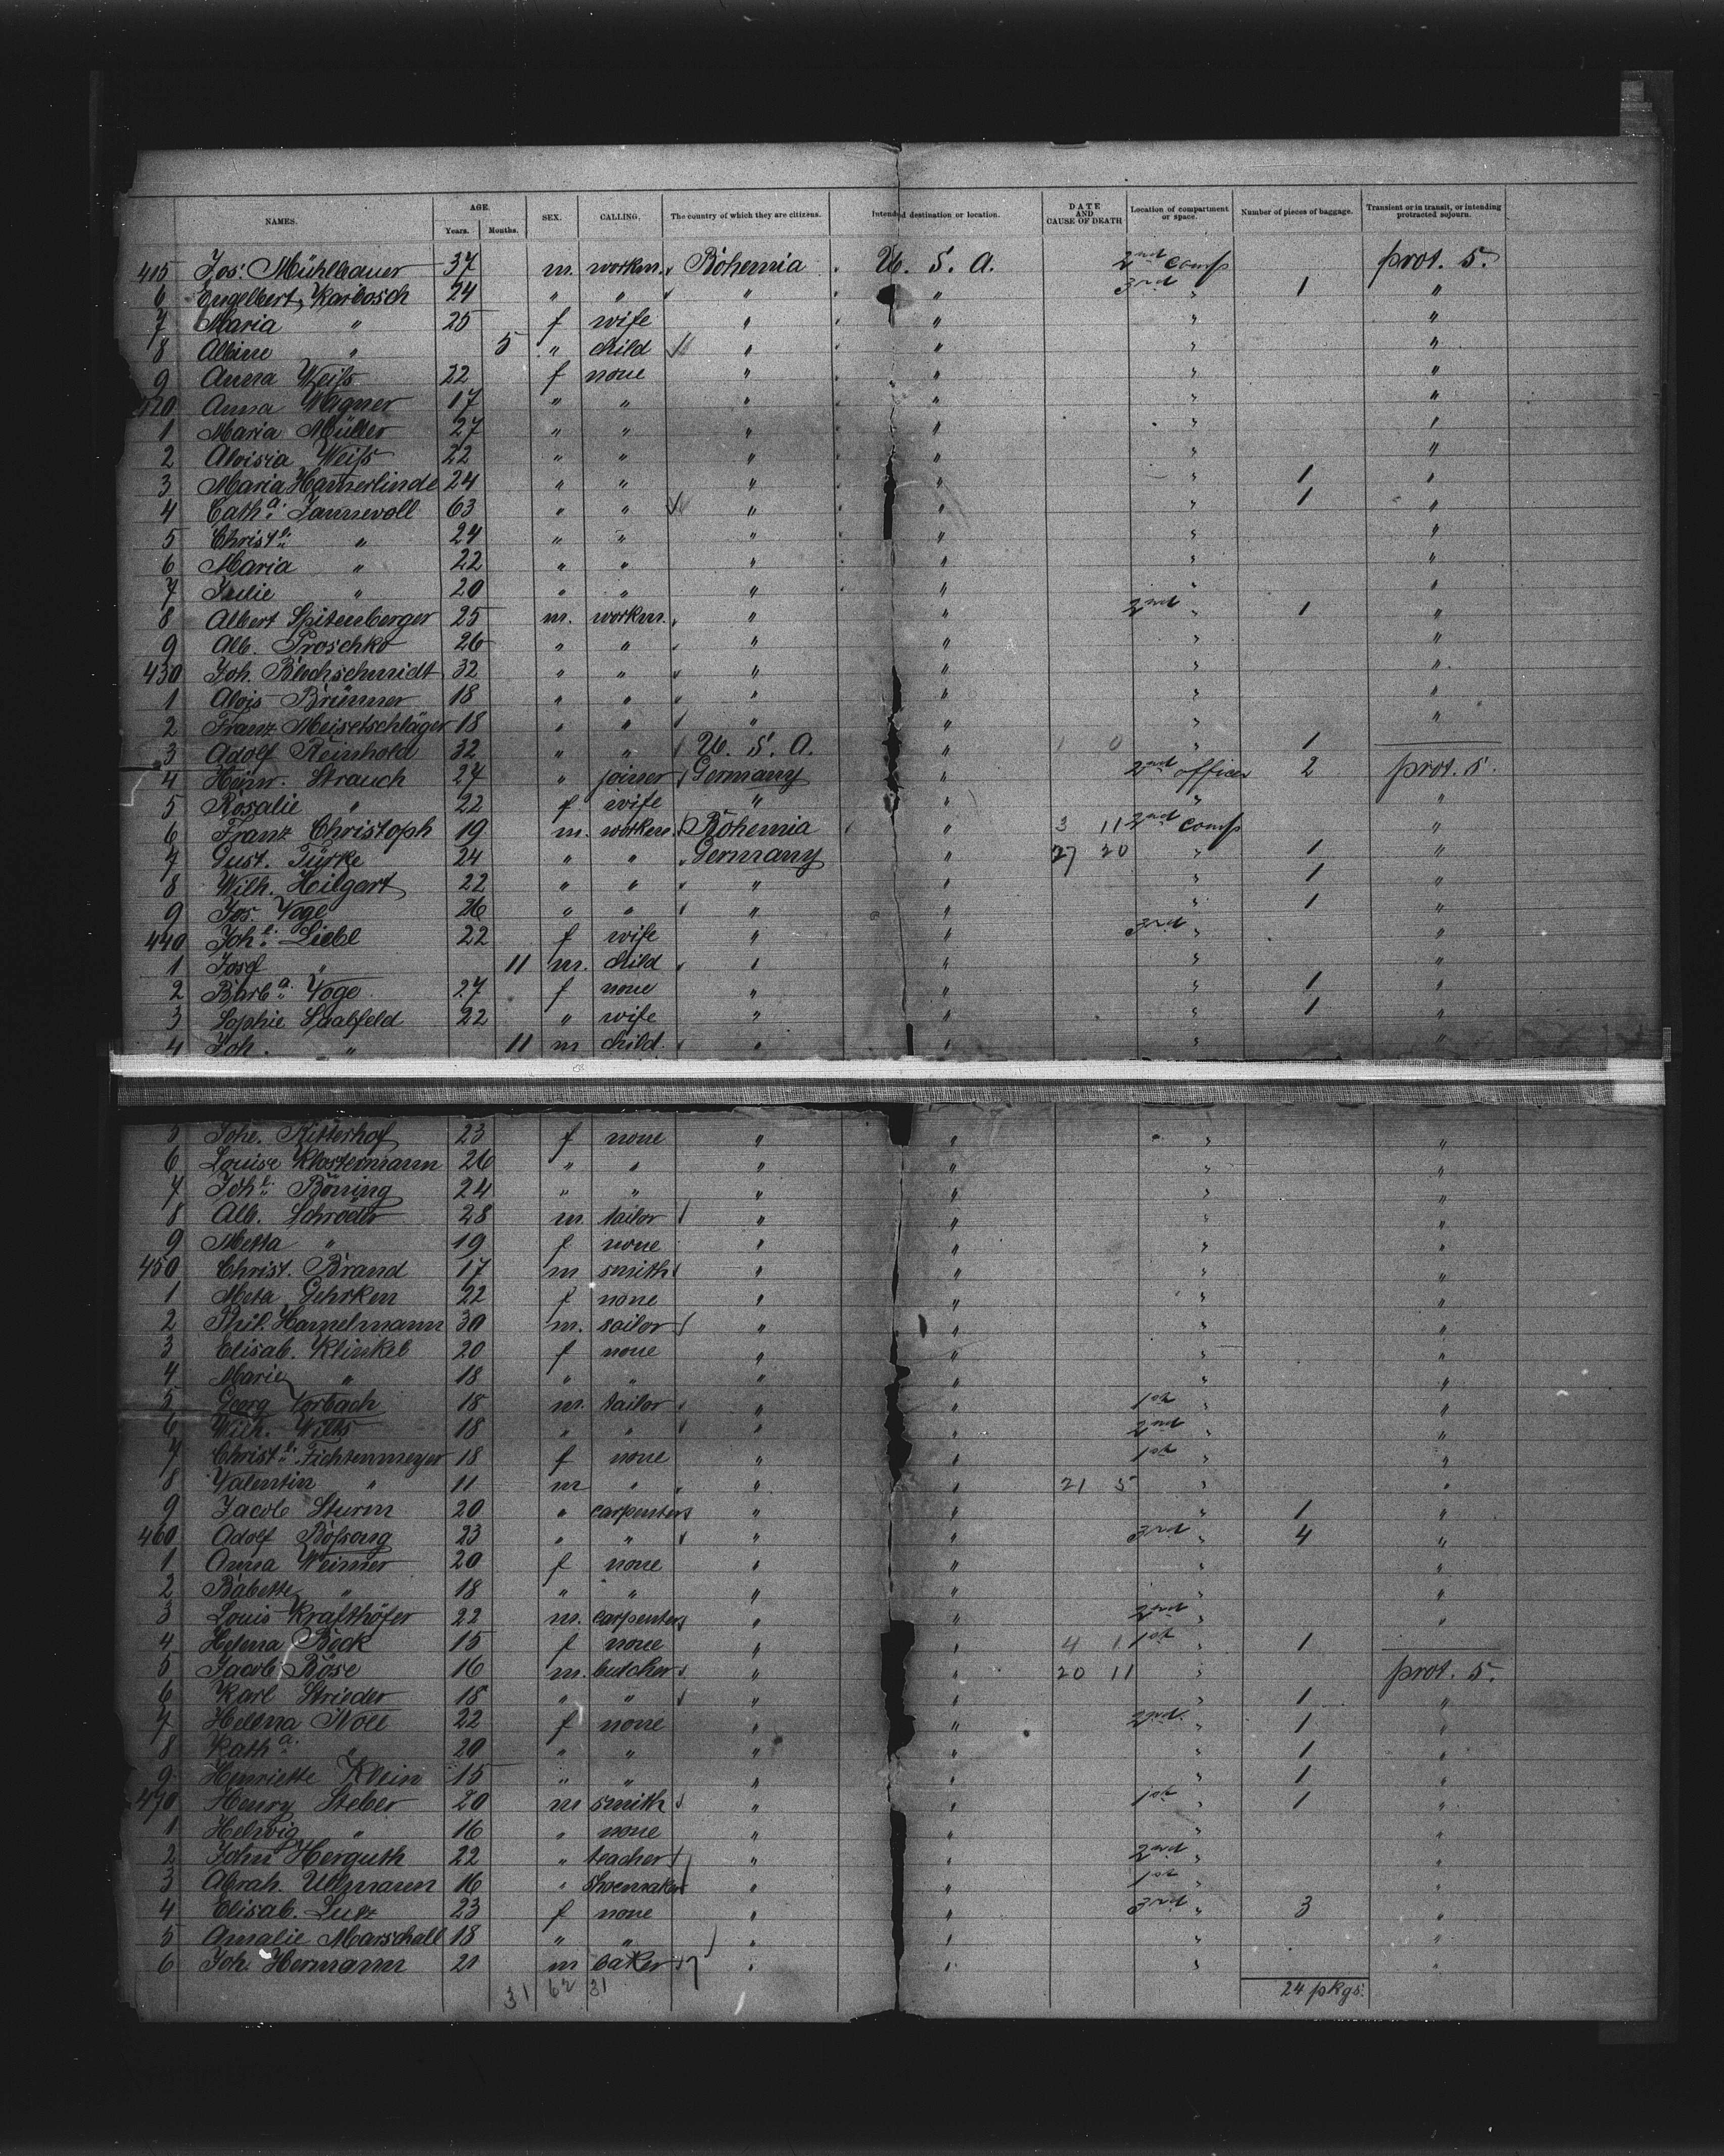 NAMES. AGE. Years. Months. SEX. CALLING. The country of which they are citizens. Intended destination or location. DATE AND CAUSE OF DEATH Location of compartment or space. Number of pieces of baggage. Transient or in transit, or intending protracted sojourn.
415 Jos. Mühlbauer 37 m. workm. Bohemia U. S. A. 2nd comp prot. S.
6 Engelbert Karbosch 24 " " " " 3rd " 1 "
7 Maria " 25 f wife " " " "
8 Albine " 5 " child " " " "
9 Anna Weiſs 22 f none " " " "
420 Anna Wagner 17 " " " " " "
1 Maria Müller 27 " " " " " "
2 Aloisia Weiſs 22 " " " " " "
3 Maria Hamerlinde 24 " " " " " 1 "
4 Catha. Jannevoll 63 " " " " " 1 "
5 Ериste. " 24 " " " " " "
6 Maria " 22 " " " " " "
7 Julie " 20 " " " " " "
8 Albert Spitenberger 25 m. workm. " " 2nd " 1 "
9 Alb. Proschko 26 " " " " " "
430 Joh. Blechschmidt 32 " " " " " "
1 Alois Brünner 18 " " " " " "
2 Franz Meisetschläger 18 " " " " " "
3 Adolf Reinhold 32 " " U. S. A. " 1 0 " 1
4 Heinr. Strauch 27 " joiner Germany " 2nd offices 2 prot. S.
5 Rosalie " 22 f wife " " " "
6 Franz Christoph 19 m. workm. Bohemia " 3 11 2nd comp "
7 Gust. Türke 24 " " Germany " 27 20 " 1 "
8 Wilh. Hilgart 22 " " " " " 1 "
9 Jos. Voge 26 " " " " " 1 "
440 Johe. Liebl 22 f wife " " 3rd " "
1 Josef " 11 m. child " " " "
2 Barba. Voge 27 f none " " " 1 "
3 Sophie Saalfeld 22 " wife " " " 1 "
4 Joh. " 11 m child. " " " "
5 Johe. Ritterhof 23 f none " " " "
6 Louise Klostermann 26 " " " " " "
7 Johe. Böning 24 " " " " " "
8 Alb. Schroeder 28 m. tailor " " " "
9 Metta " 19 f none " " " "
450 Christ. Brand 17 m smith " " " "
1 Meta Gehrken 22 f none " " " "
2 Phil. Hamelmann 30 m. sailor " " " "
3 Elisab. Klinkel 20 f none " " " "
4 Marie " 18 " " " " " "
5 Georg Vorbach 18 m. tailor " " 1st " "
6 Wilh. Wilts 18 " " " " 2nd " "
7 Christe. Fichtenmeyer 18 f none " " 1st " "
8 Valentin " 11 m " " " 21 5 " "
9 Jacob Sturm 20 " carpenter " " " 1 "
460 Adolf Boſsong 23 " " " " 3rd " 4 "
1 Anna Weimer 20 f none " " " "
2 Babette " 18 " " " " " "
3 Louis Krafthöfer 22 m. carpenter " " 2nd " "
4 Helena Bock 15 f none " " 4 1 1st " 1
5 Jacob Böse 16 m. butcher " " 20 11 " prot. S.
6 Karl Strieder 18 " " " " " 1 "
7 Helena Noll 22 f none " " 2nd. " 1 "
8 Katha. " 20 " " " " " 1 "
9 Henriette Klein 15 " " " " " 1 "
470 Henry Steber 20 m smith " " 1st " 1 "
1 Helwig " 16 " none " " " "
2 John Herguth 22 " teacher " " 2nd " "
3 Abrah. Ullmann 16 " shoemaker " " 1st " "
4 Elisab. Lutz 23 f none " " 3rd " 3 "
5 Amalie Marschall 18 " " " " " "
6 Joh. Hermann 21 m baker " " " "
31 62 31 24 pkgs.